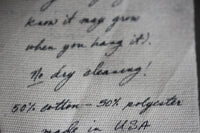 know it may grow
when you hang it).
No dry cleaning!
50% cotton – 50% polyester
made in USA